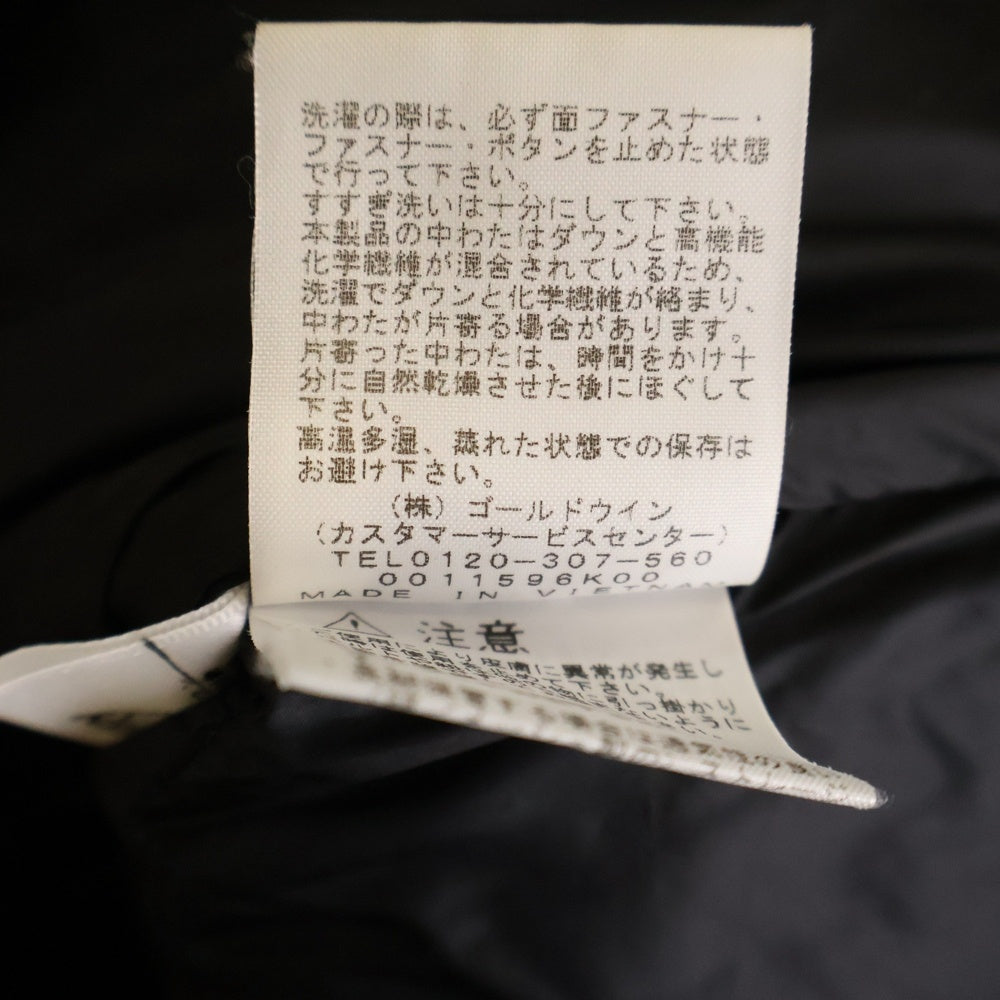 洗濯の際は、必ず面ファスナー・
ファスナー・ボタンを止めた状態
で行って下さい。
すすぎ洗いは十分にして下さい。
本製品の中わたはダウンと高機能
化学繊維が混合されているため、
洗濯でダウンと化学繊維が絡まり、
中わたが片寄る場合があります。
片寄った中わたは、時間をかけ十
分に自然乾燥させた後にほぐして
下さい。
高温多湿、蒸れた状態での保存は
お避け下さい。
(株)ゴールドウイン
(カスタマーサービスセンター)
TEL0120-307-560
0011596K00
MADE IN VIETNAM
注意
使用により皮膚に異常が発生し
下さい。
引っ掛かり
ように